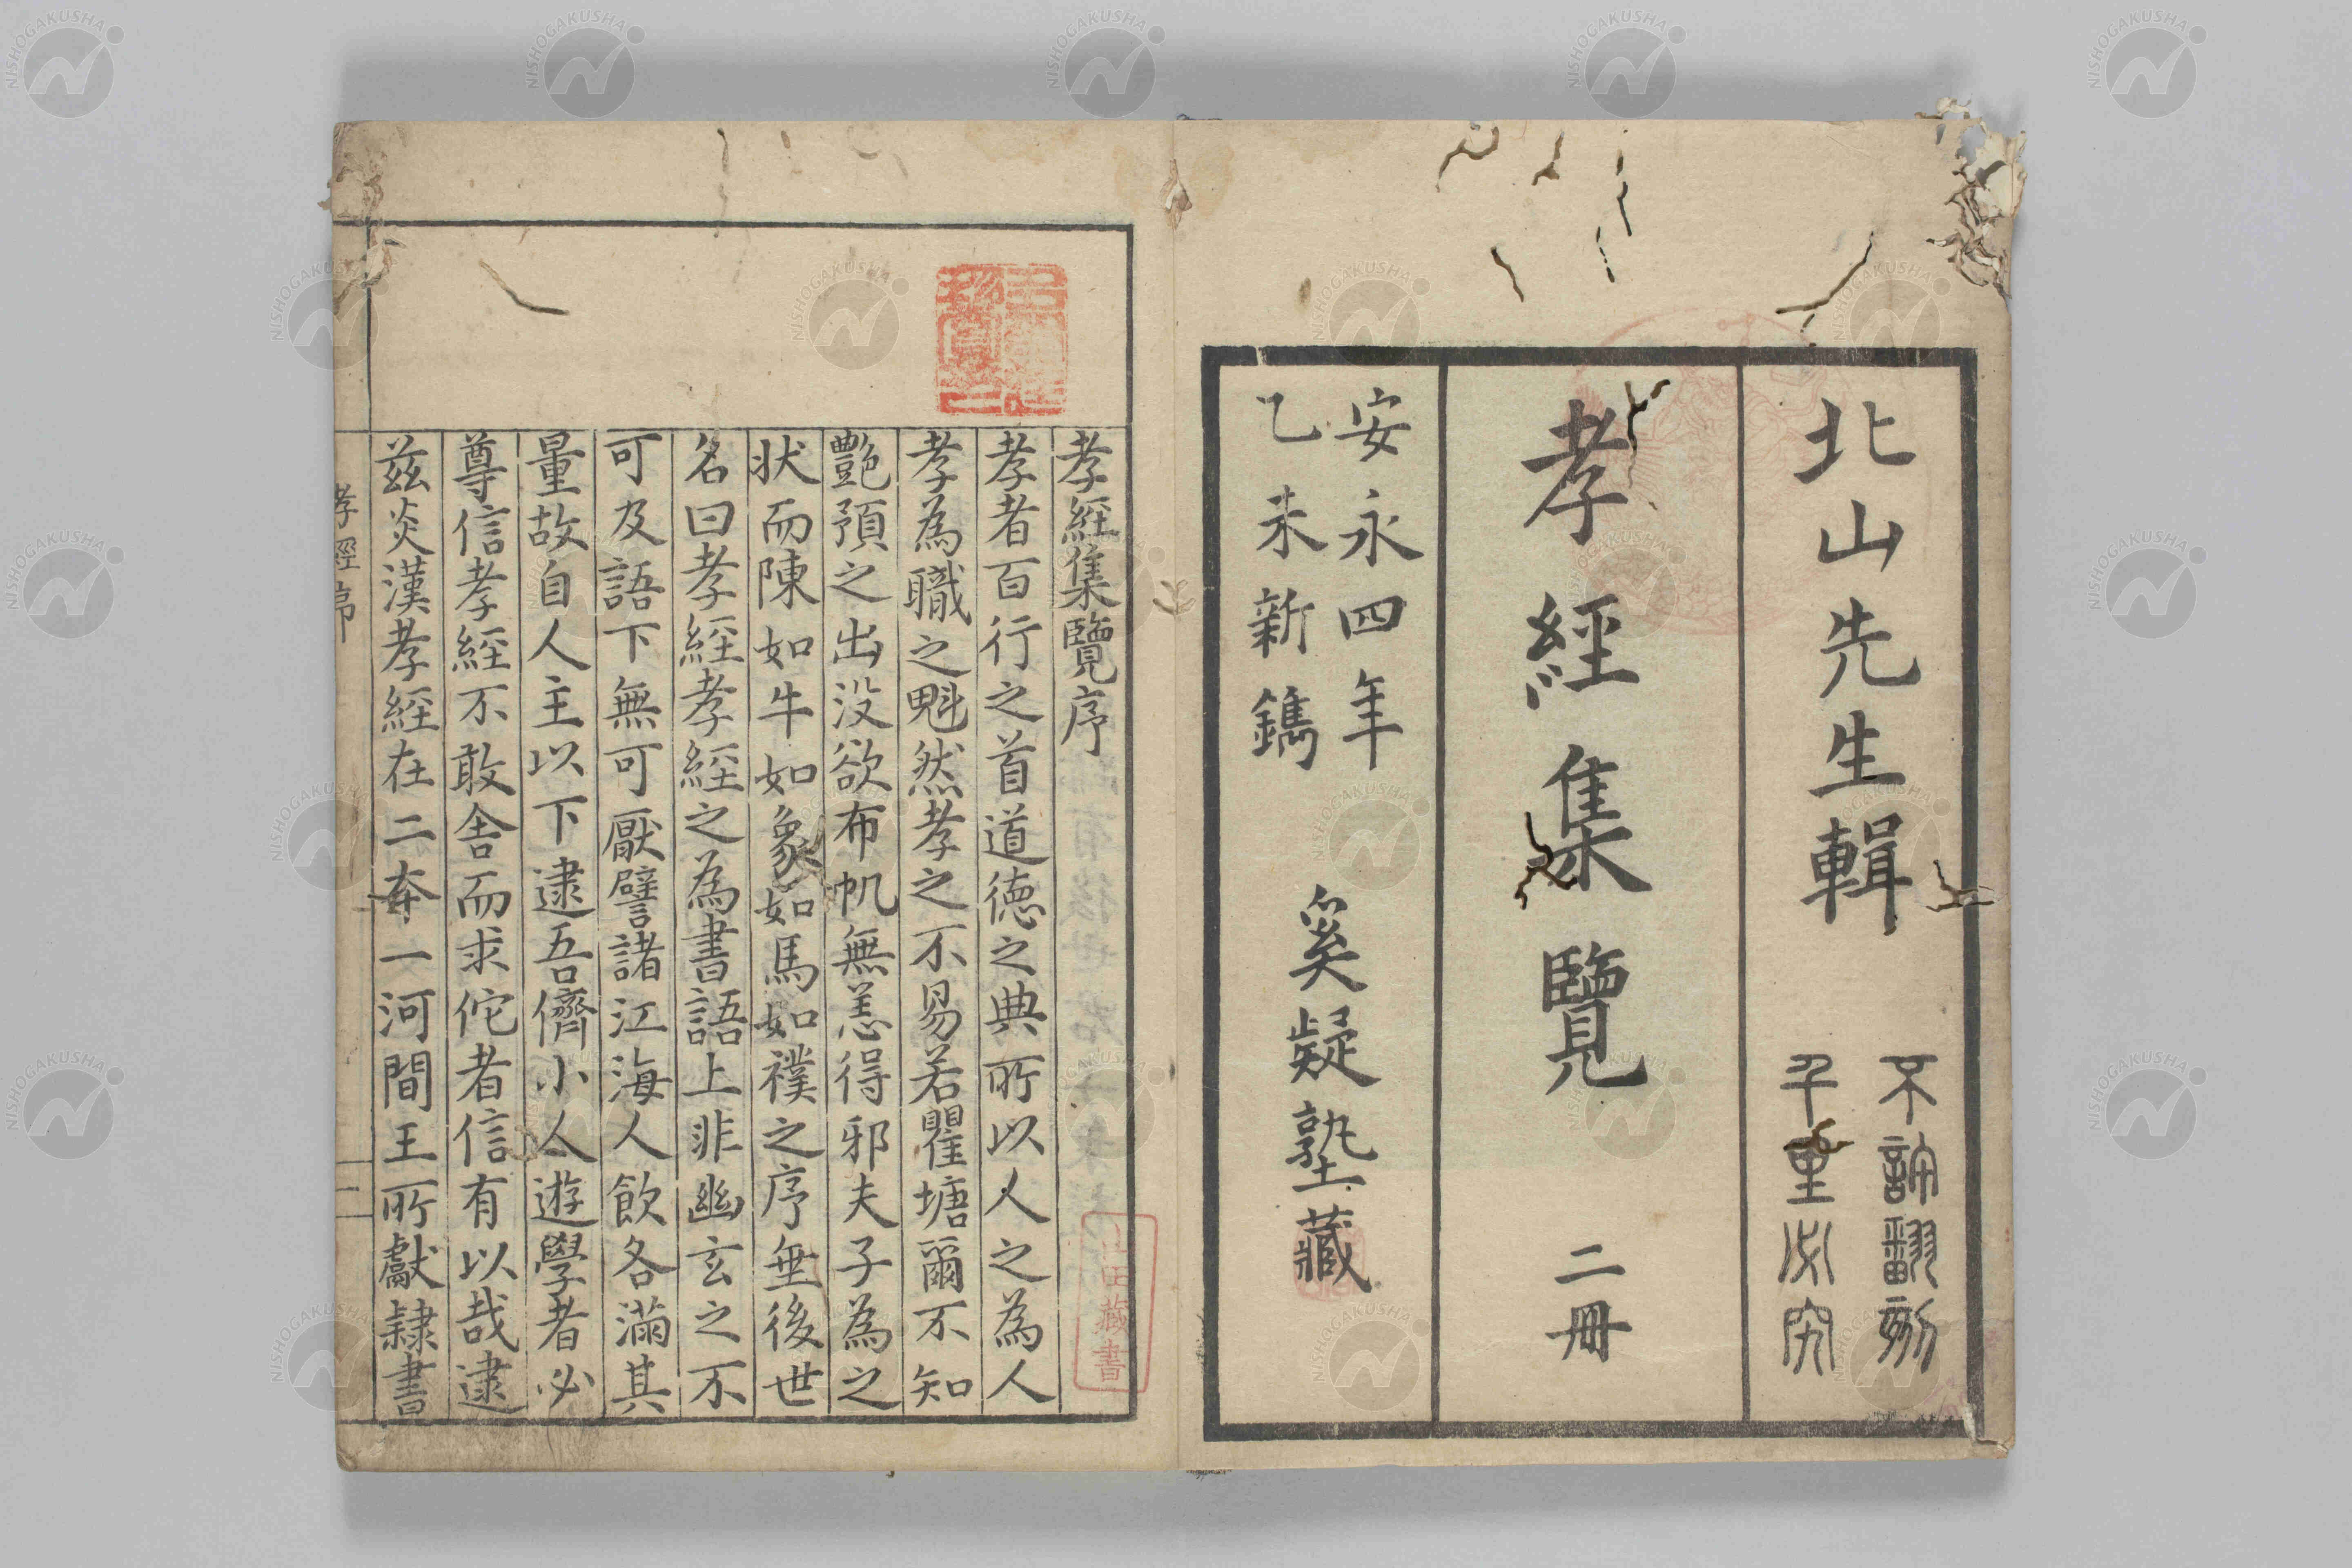 北山先生輯
不許翻刻
千里必究
孝經集覽 二冊
安永四年
乙未新鐫
奚疑塾藏
孝經集覽序
孝者百行之首道德之典所以人之為人
孝為職之魁然孝之不易若瞿塘爾不知
艷預之出没欲布帆無恙得邪夫子為之
状而陳如牛如象如馬如襆之序垂後世
名曰孝經孝經之為書語上非幽玄之不
可及語下無可厭譬諸江海人飲各滿其
量故自人主以下逮吾儕小人遊學者必
尊信孝經不敢舍而求佗者信有以哉逮
茲炎漢孝經在二夲一河間王所獻隷書
孝經序
一
山田藏書
NISHOGAKUSHA